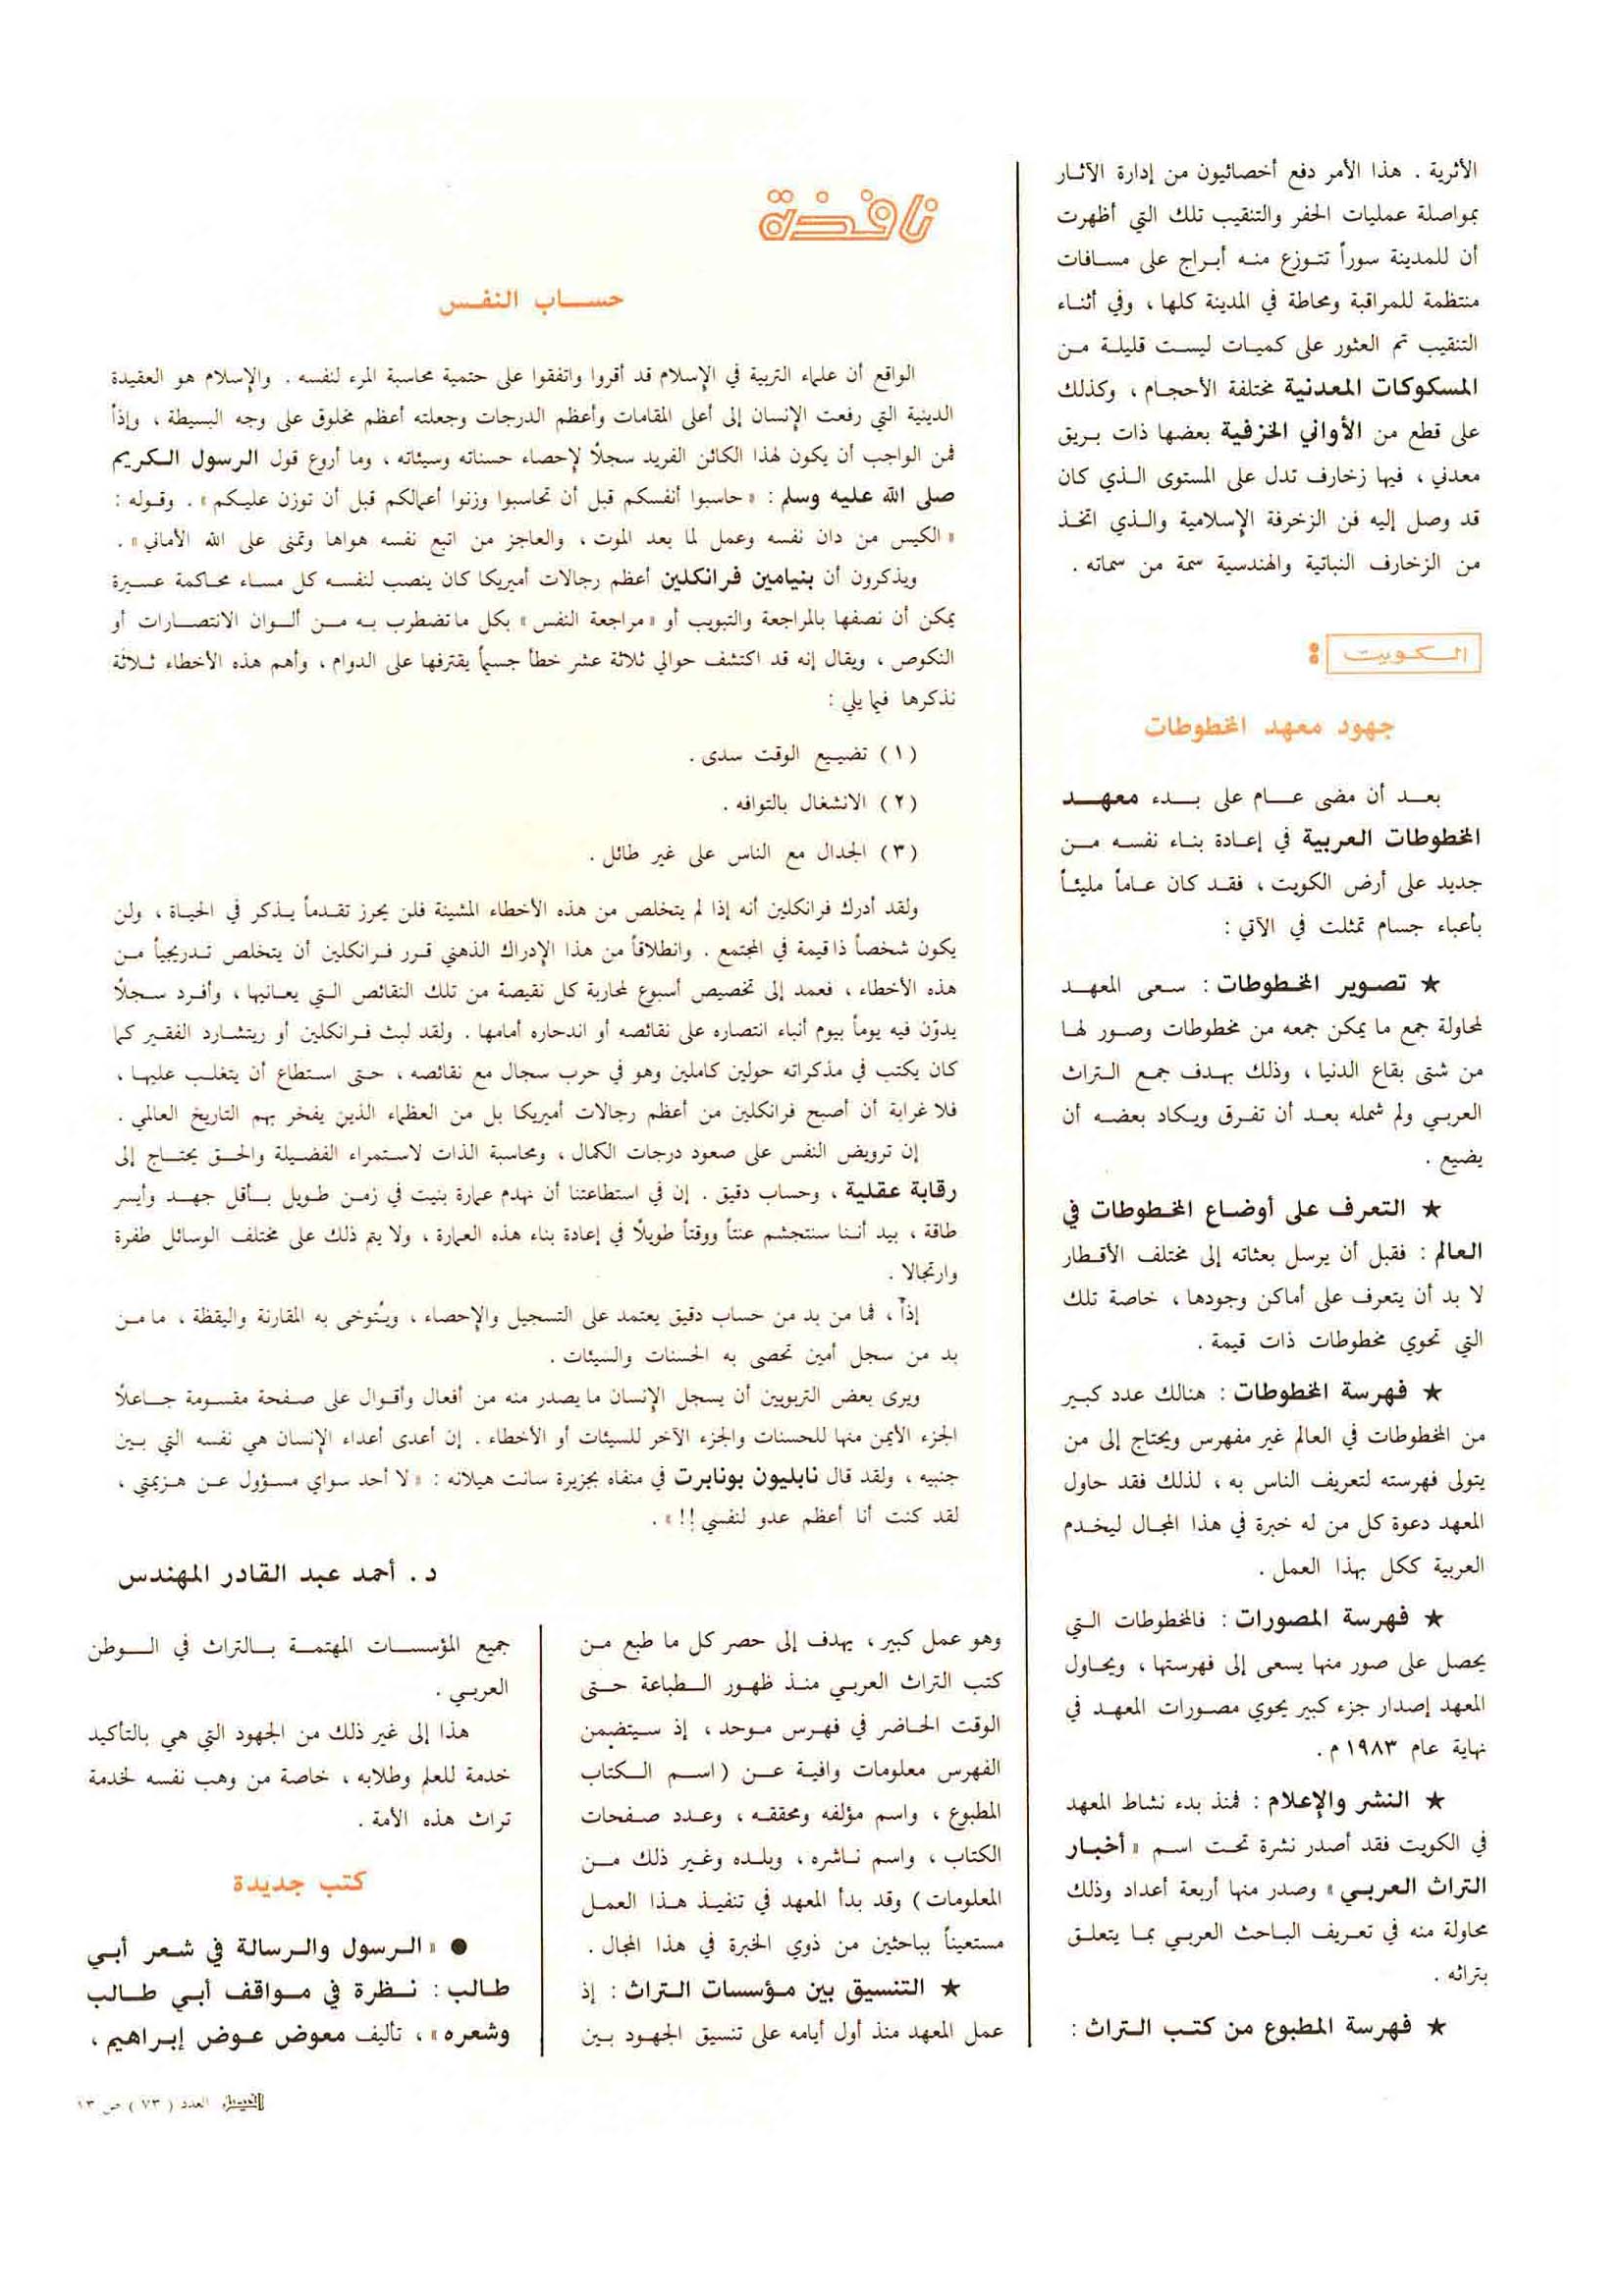 الأثرية . هذا الأمر دفع أخصائيون من إدارة الآثار
بمواصلة عمليات الحفر والتنقيب تلك التي أظهرت
أن للمدينة سوراً تتوزع منه أبراج على مسافات
منتظمة للمراقبة ومحاطة في المدينة كلها ، وفي أثناء
التنقيب تم العثور على كميات ليست قليلة من
المسكوكات المعدنية مختلفة الأحجام ، وكذلك
على قطع من الأواني الخزفية بعضها ذات بريق
معدني ، فيها زخارف تدل على المستوى الذي كان
قد وصل إليه فن الزخرفة الإسلامية والذي اتخذ
من الزخارف النباتية والهندسية سمة من سماته .
الكويت :
جهود معهد المخطوطات
بعد أن مضى عام على بدء معهد
المخطوطات العربية في إعادة بناء نفسه من
جديد على أرض الكويت ، فقد كان عاماً مليئاً
بأعباء جسام تمثلت في الآتي :
★ تصوير المخطوطات : سعى المعهد
لمحاولة جمع ما يمكن جمعه من مخطوطات وصور لها
من شتى بقاع الدنيا ، وذلك بهدف جمع التراث
العربي ولم شمله بعد أن تفرق ويكاد بعضه أن
يضيع .
★ التعرف على أوضاع المخطوطات في
العالم : فقبل أن يرسل بعثاته إلى مختلف الأقطار
لا بد أن يتعرف على أماكن وجودها ، خاصة تلك
التي تحوي مخطوطات ذات قيمة .
★ فهرسة المخطوطات : هنالك عدد كبير
من المخطوطات في العالم غير مفهرس ويحتاج إلى من
يتولى فهرسته لتعريف الناس به ، لذلك فقد حاول
المعهد دعوة كل من له خبرة في هذا المجال ليخدم
العربية ككل بهذا العمل .
★ فهرسة المصورات : فالمخطوطات التي
يحصل على صور منها يسعى إلى فهرستها ، ويحاول
المعهد إصدار جزء كبير يحوي مصورات المعهد في
نهاية عام ١٩٨٣ م .
★ النشر والإعلام : فمنذ بدء نشاط المعهد
في الكويت فقد أصدر نشرة تحت اسم « أخبار
التراث العربي » وصدر منها أربعة أعداد وذلك
محاولة منه في تعريف الباحث العربي بما يتعلق
بتراثه .
★ فهرسة المطبوع من كتب التراث :
نافذة
حساب النفس
الواقع أن علماء التربية في الإسلام قد أقروا واتفقوا على حتمية محاسبة المرء لنفسه . والإسلام هو العقيدة
الدينية التي رفعت الإنسان إلى أعلى المقامات وأعظم الدرجات وجعلته أعظم مخلوق على وجه البسيطة ، وإذاً
فمن الواجب أن يكون لهذا الكائن الفريد سجلاً لإحصاء حسناته وسيئاته ، وما أروع قول الرسول الكريم
صلى الله عليه وسلم : « حاسبوا أنفسكم قبل أن تحاسبوا وزنوا أعمالكم قبل أن توزن عليكم » . وقوله :
« الكيس من دان نفسه وعمل لما بعد الموت ، والعاجز من اتبع نفسه هواها وتمنى على الله الأماني » .
ويذكرون أن بنيامين فرانكلين أعظم رجالات أميريكا كان ينصب لنفسه كل مساء محاكمة عسيرة
يمكن أن نصفها بالمراجعة والتبويب أو « مراجعة النفس » بكل ما تضطرب به من ألوان الانتصارات أو
النكوص ، ويقال إنه قد اكتشف حوالي ثلاثة عشر خطأ جسيماً يقترفها على الدوام ، وأهم هذه الأخطاء ثلاثة
نذكرها فيما يلي :
( ١ ) تضييع الوقت سدى .
( ٢ ) الانشغال بالتوافه .
( ٣ ) الجدال مع الناس على غير طائل .
ولقد أدرك فرانكلين أنه إذا لم يتخلص من هذه الأخطاء المشينة فلن يحرز تقدماً يذكر في الحياة ، ولن
يكون شخصاً ذا قيمة في المجتمع . وانطلاقاً من هذا الإدراك الذهني قرر فرانكلين أن يتخلص تدريجياً من
هذه الأخطاء ، فعمد إلى تخصيص أسبوع لمحاربة كل نقيصة من تلك النقائص التي يعانيها ، وأفرد سجلاً
يدوّن فيه يوماً بيوم أنباء انتصاره على نقائصه أو اندحاره أمامها . ولقد لبث فرانكلين أو ريتشارد الفقير كما
كان يكتب في مذكراته حولين كاملين وهو في حرب سجال مع نقائصه ، حتى استطاع أن يتغلب عليها ،
فلا غرابة أن أصبح فرانكلين من أعظم رجالات أميريكا بل من العظماء الذين يفخر بهم التاريخ العالمي .
إن ترويض النفس على صعود درجات الكمال ، ومحاسبة الذات لاستمراء الفضيلة والحق يحتاج إلى
رقابة عقلية ، وحساب دقيق . إن في استطاعتنا أن نهدم عمارة بنيت في زمن طويل بأقل جهد وأيسر
طاقة ، بيد أننا سنتجشم عنتاً ووقتاً طويلاً في إعادة بناء هذه العمارة ، ولا يتم ذلك على مختلف الوسائل طفرة
وارتجالا .
إذاً ، فما من بد من حساب دقيق يعتمد على التسجيل والإحصاء ، ويُتوخى به المقارنة واليقظة ، ما من
بد من سجل أمين تحصى به الحسنات والسيئات .
ويرى بعض التربويين أن يسجل الإنسان ما يصدر منه من أفعال وأقوال على صفحة مقسومة جاعلاً
الجزء الأيمن منها للحسنات والجزء الآخر للسيئات أو الأخطاء . إن أعدى أعداء الإنسان هي نفسه التي بين
جنبيه ، ولقد قال نابليون بونابرت في منفاه بجزيرة سانت هيلانه : « لا أحد سواي مسؤول عن هزيمتي ،
لقد كنت أنا أعظم عدو لنفسي !! » .
د . أحمد عبد القادر المهندس
وهو عمل كبير ، يهدف إلى حصر كل ما طبع من
كتب التراث العربي منذ ظهور الطباعة حتى
الوقت الحاضر في فهرس موحد ، إذ سيتضمن
الفهرس معلومات وافية عن ( اسم الكتاب
المطبوع ، واسم مؤلفه ومحققه ، وعدد صفحات
الكتاب ، واسم ناشره ، وبلده وغير ذلك من
المعلومات ) وقد بدأ المعهد في تنفيذ هذا العمل
مستعيناً بباحثين من ذوي الخبرة في هذا المجال .
★ التنسيق بين مؤسسات التراث : إذ
عمل المعهد منذ أول أيامه على تنسيق الجهود بين
جميع المؤسسات المهتمة بالتراث في الوطن
العربي .
هذا إلى غير ذلك من الجهود التي هي بالتأكيد
خدمة للعلم وطلابه ، خاصة من وهب نفسه لخدمة
تراث هذه الأمة .
كتب جديدة
● « الرسول والرسالة في شعر أبي
طالب : نظرة في مواقف أبي طالب
وشعره » ، تأليف معوض عوض إبراهيم ،
الفيصل العدد ( ٧٣ ) ص ١٣